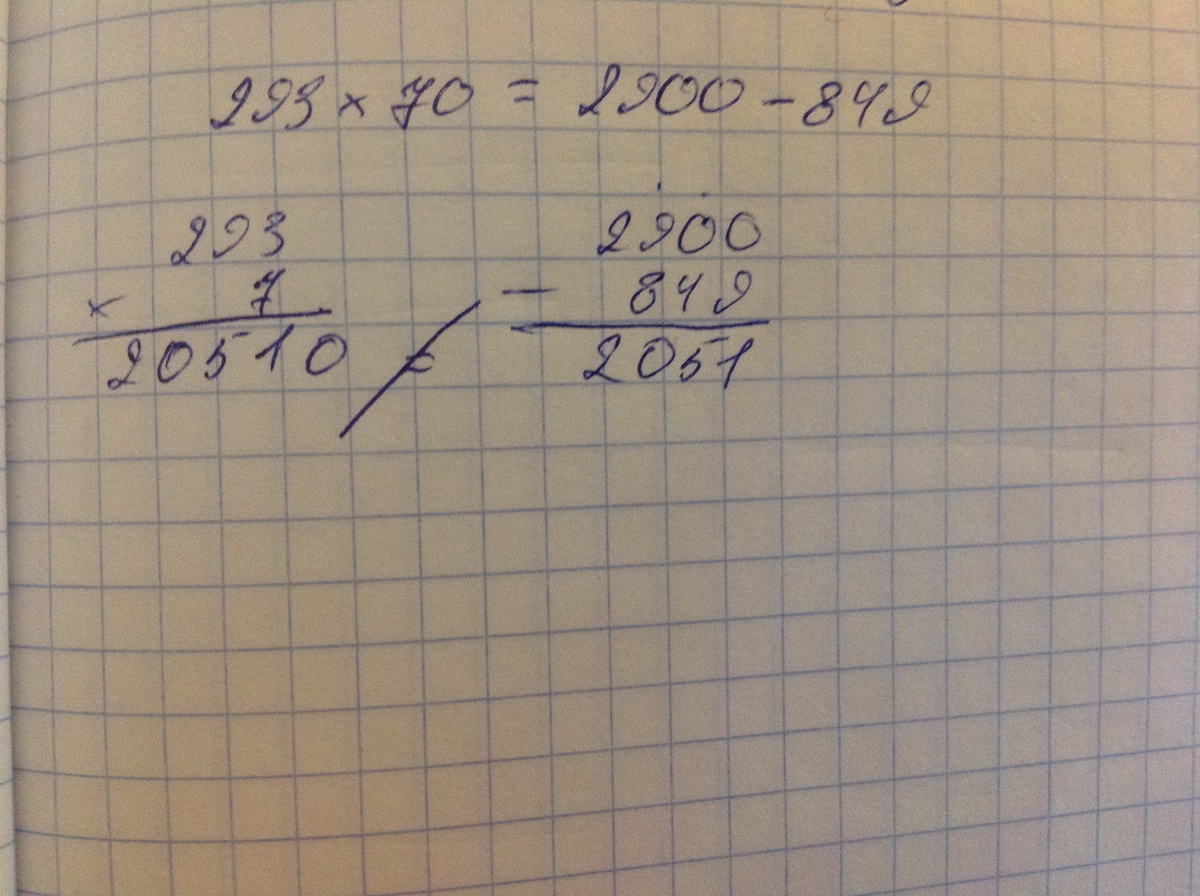 293 × 70 = 2900 - 849
293
× 7
20510
≠
2900
- 849
2051